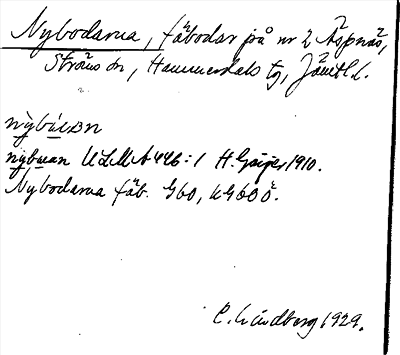 Nybodarna, fäbodar på nr 2 Äspnäs,
Ströms sn, Hammerdals tg, Jämtl. l.
nybuan ULMA 446:1 H. Geijer 1910.
Nybodarna fäb. G60, kG60Ö.
C. Lindberg 1929.